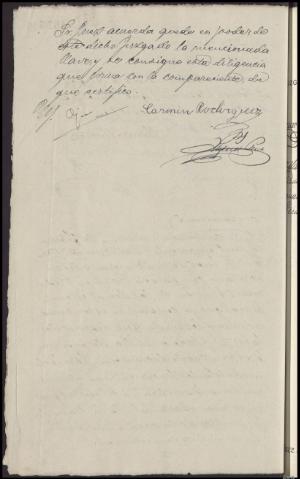 Sr. Juez acuerda quede en poder de
este dicho Juzgado la mencionada
llave y se consigna esta diligencia
que firma con la compareciente de
que certifico.
Carmen Rodriguez